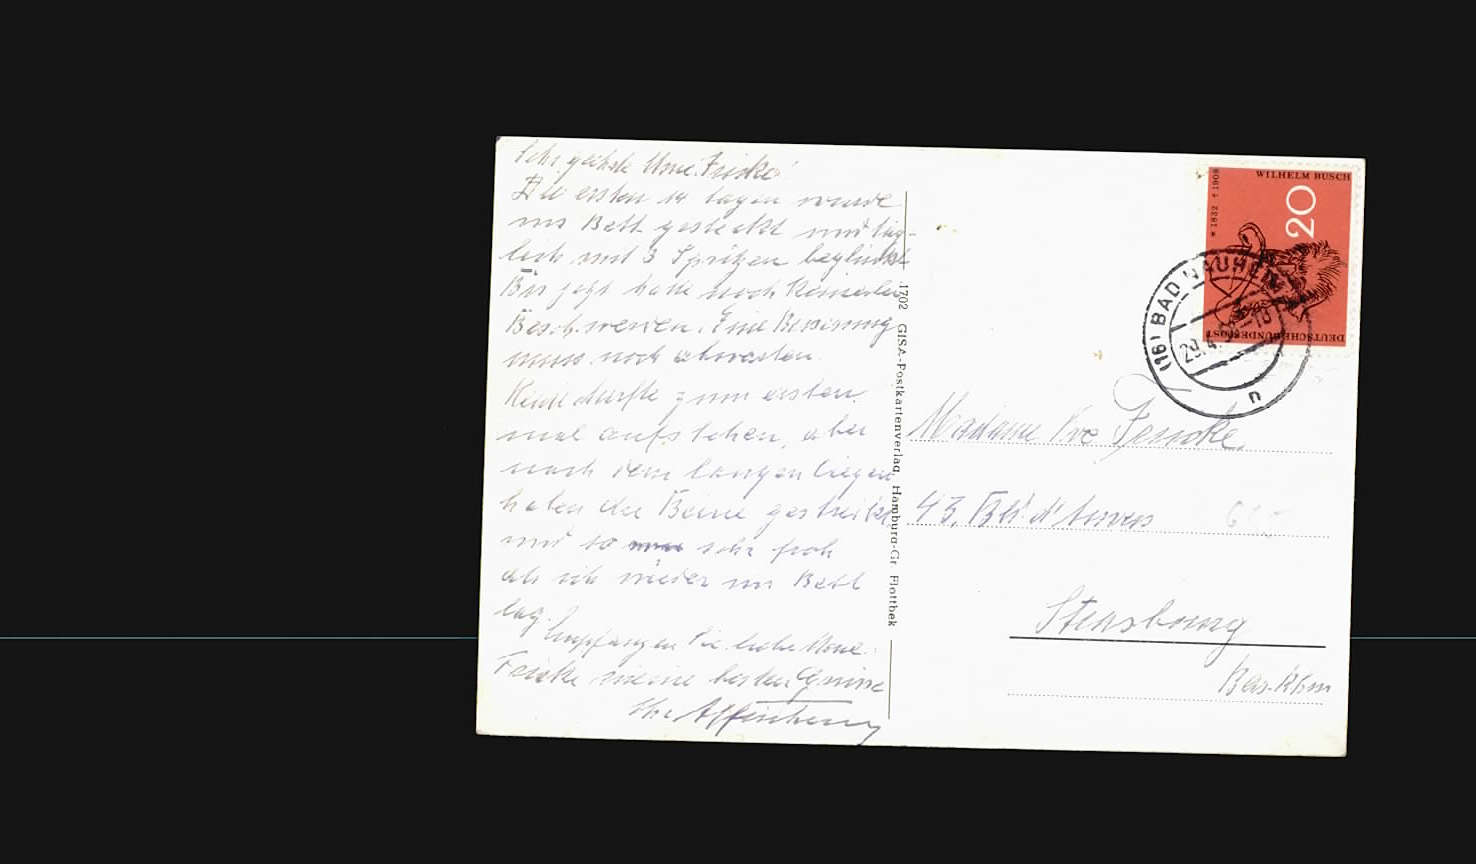 Sehr geehrte Mme. Fricke!
Die ersten 14 tagen wurde
ins Bett gesteckt und täg-
lich mit 3 Spritzen beglückt
Bis jetzt hatte noch keinerlei
Beschwerden. Eine Besserung
muss noch abwarten.
Heute durfte zum ersten
mal aufstehen, aber
nach dem langen liegen
haben die Beine gestreikt
und so sehr froh
als ich wieder im Bett
lag.
Empfangen Sie liebe Mme.
Fricke meine besten Grüsse
Ihr
1702 GISA-Postkartenverlag, Hamburg-Gr. Flottbek
WILHELM BUSCH
* 1832 † 1908
20
DEUTSCHE BUNDESPOST
(16) BAD NAUHEIM
29.4.
n
Madame Vve Fricke
43, Bld d'Anvers
Strasbourg
Bas-Rhin